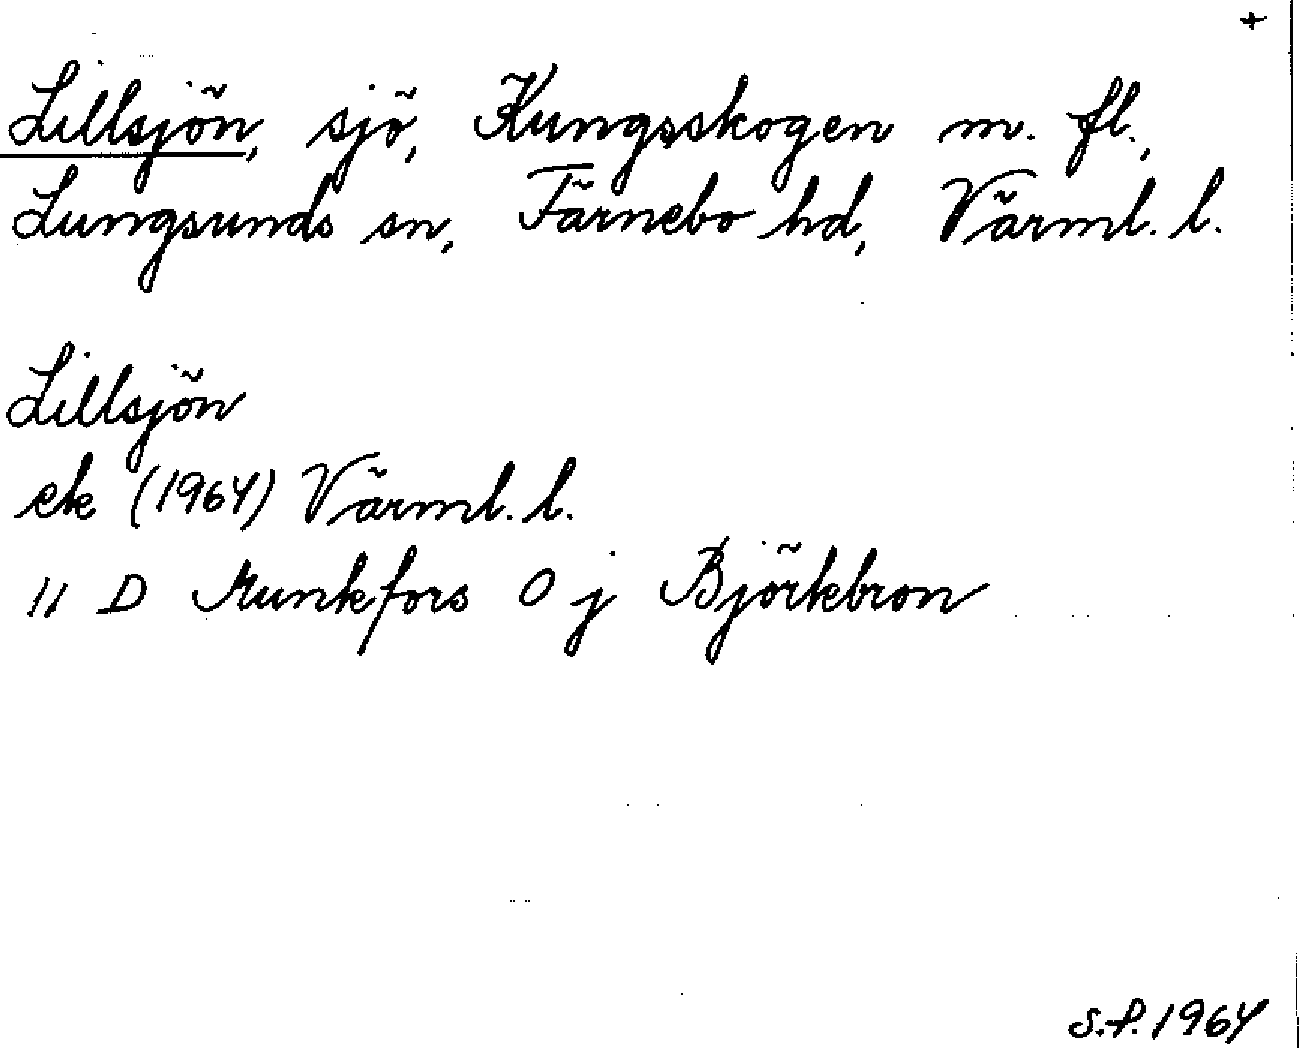 +
Lillsjön, sjö, Kungsskogen m. fl.,
Lungsunds sn, Färnebo hd, Värml. l.
Lillsjön
ek (1964) Värml. l.
11 D Munkfors 0 j Björkbron
S.P. 1964